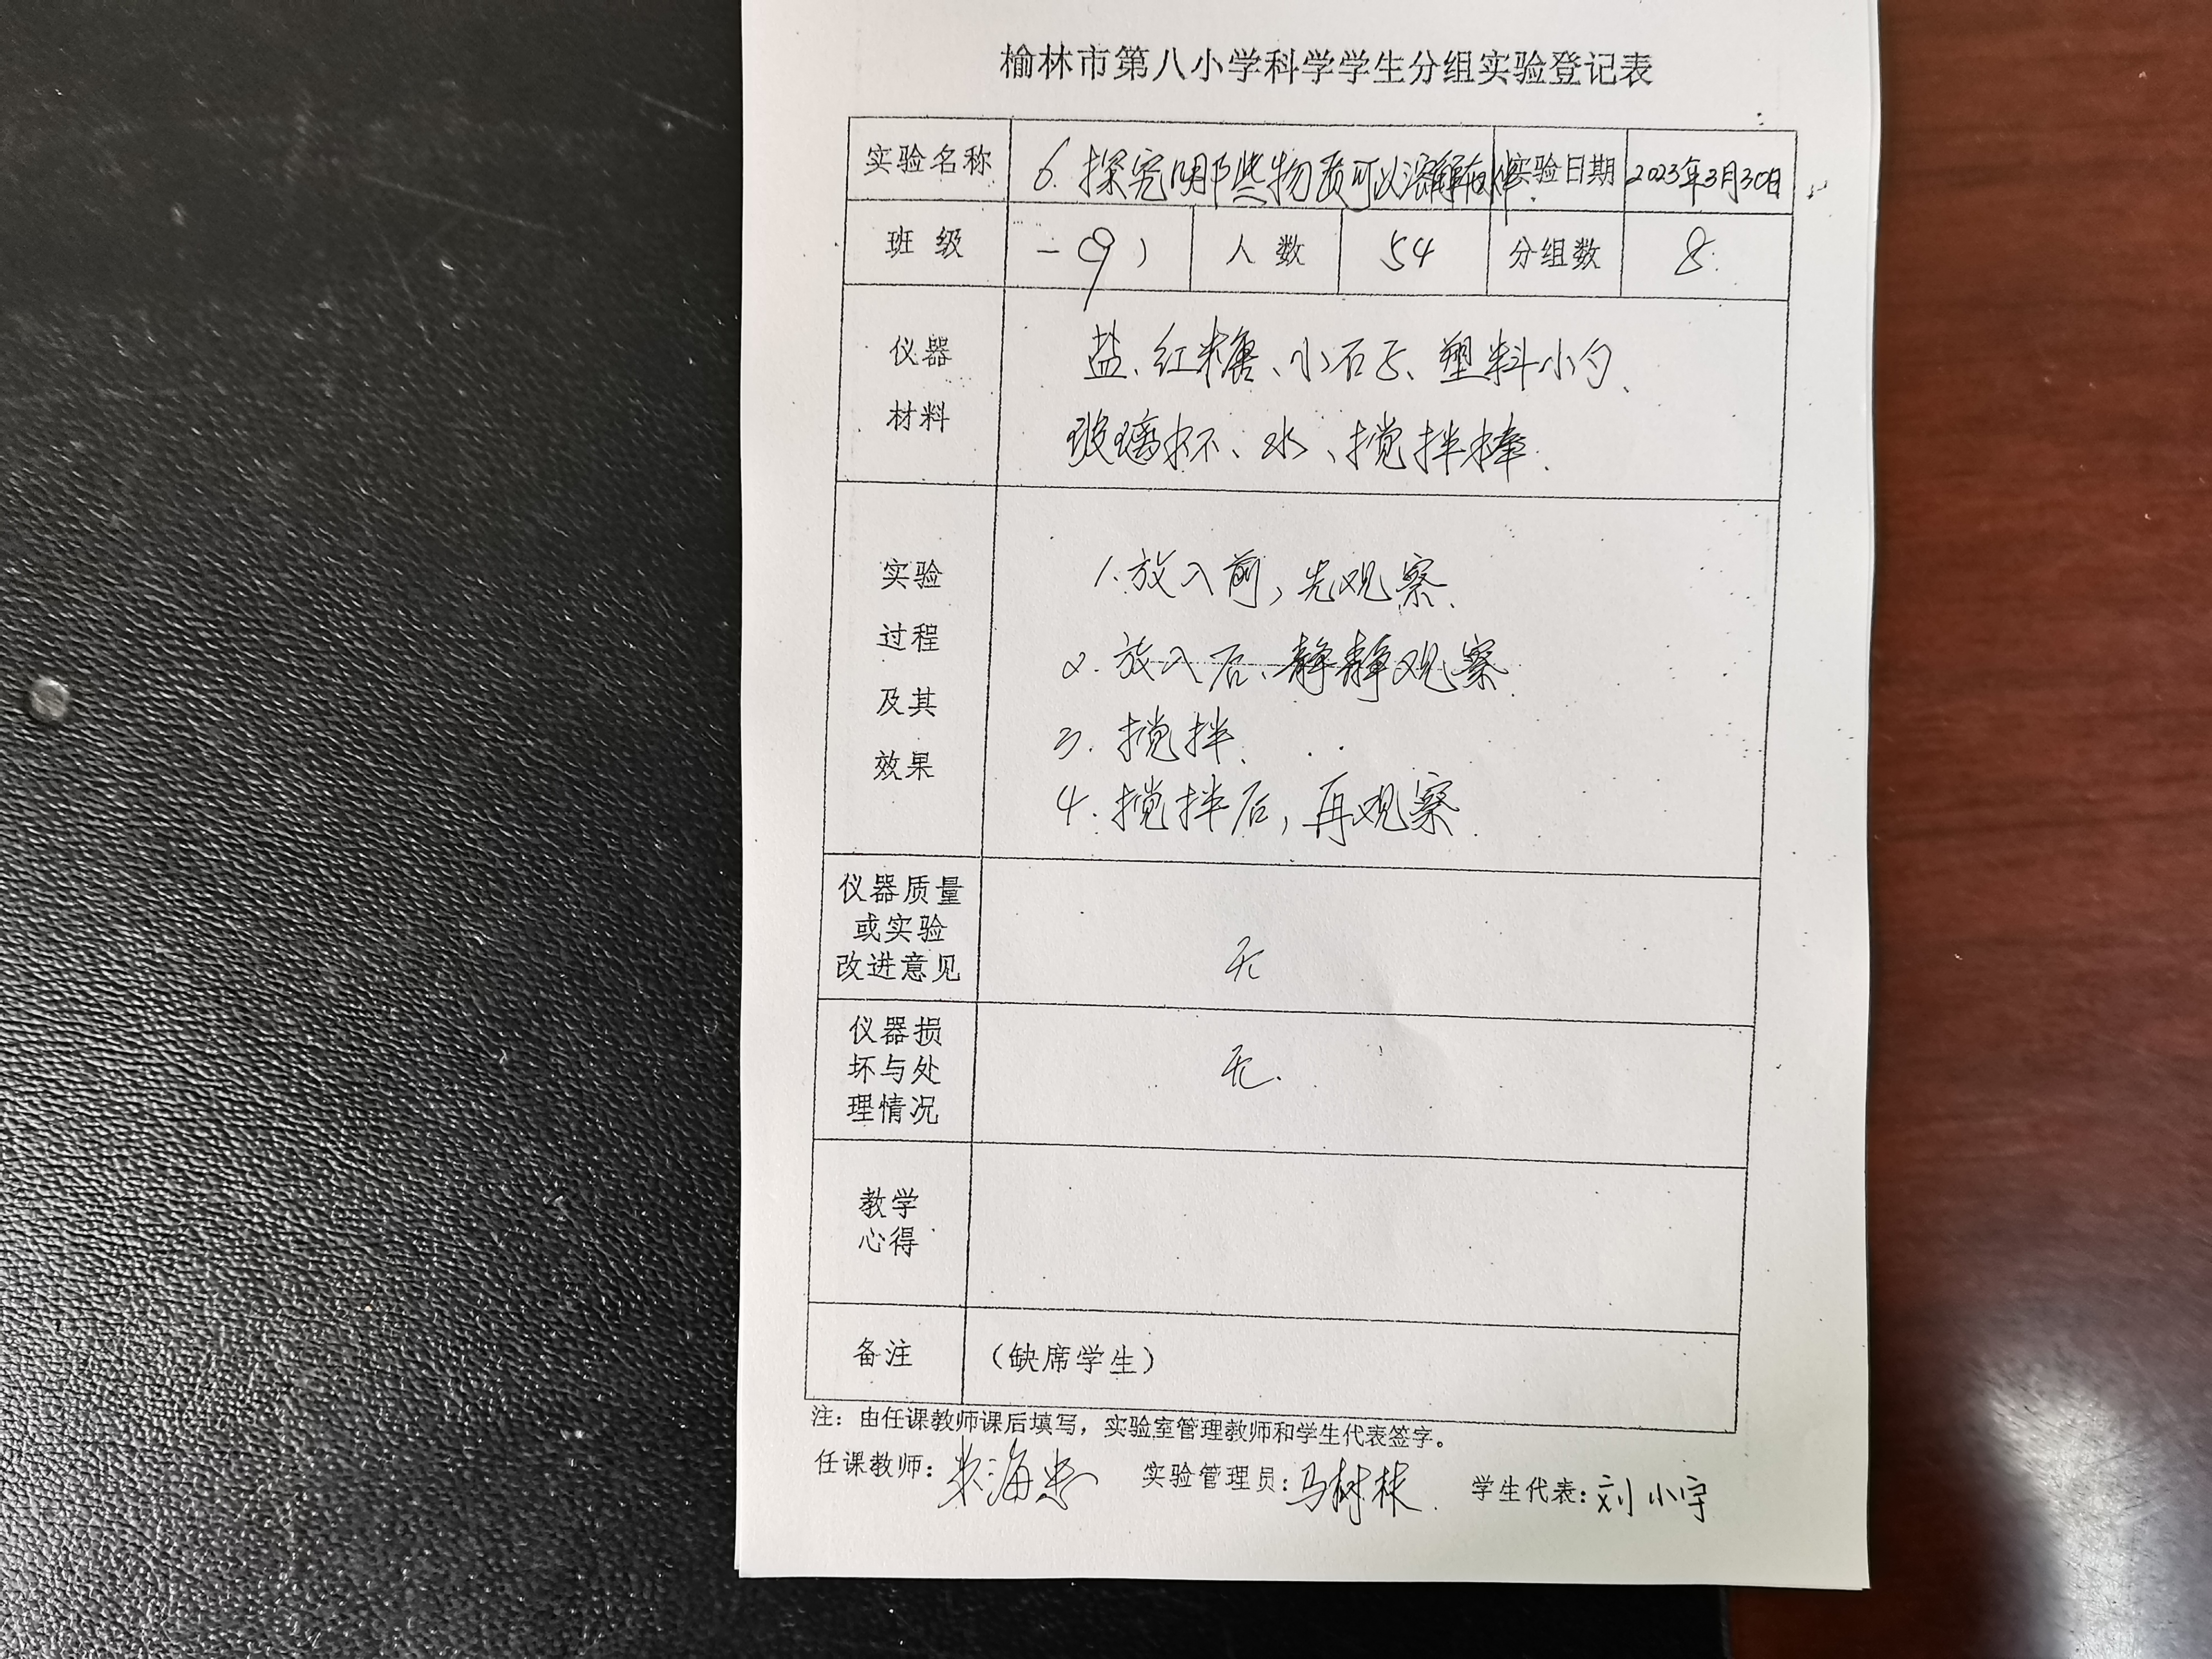 榆林市第八小学科学学生分组实验登记表
实验名称 6. 探究哪些物质可以溶解在水中. 实验日期 2023年3月30日
班 级 一(9) 人 数 54 分组数 8.
仪器 盐、红糖、小石子、塑料小勺、
材料 玻璃杯、水、搅拌棒.
实验 1.放入前,先观察.
过程 2.放入后、静静观察.
及其 3.搅拌.
效果 4.搅拌后,再观察.
仪器质量
或实验
改进意见 无
仪器损
坏与处 无.
理情况
教学
心得
备注 （缺席学生）
注：由任课教师课后填写，实验室管理教师和学生代表签字。
任课教师: 实验管理员:马树林. 学生代表:刘小宇